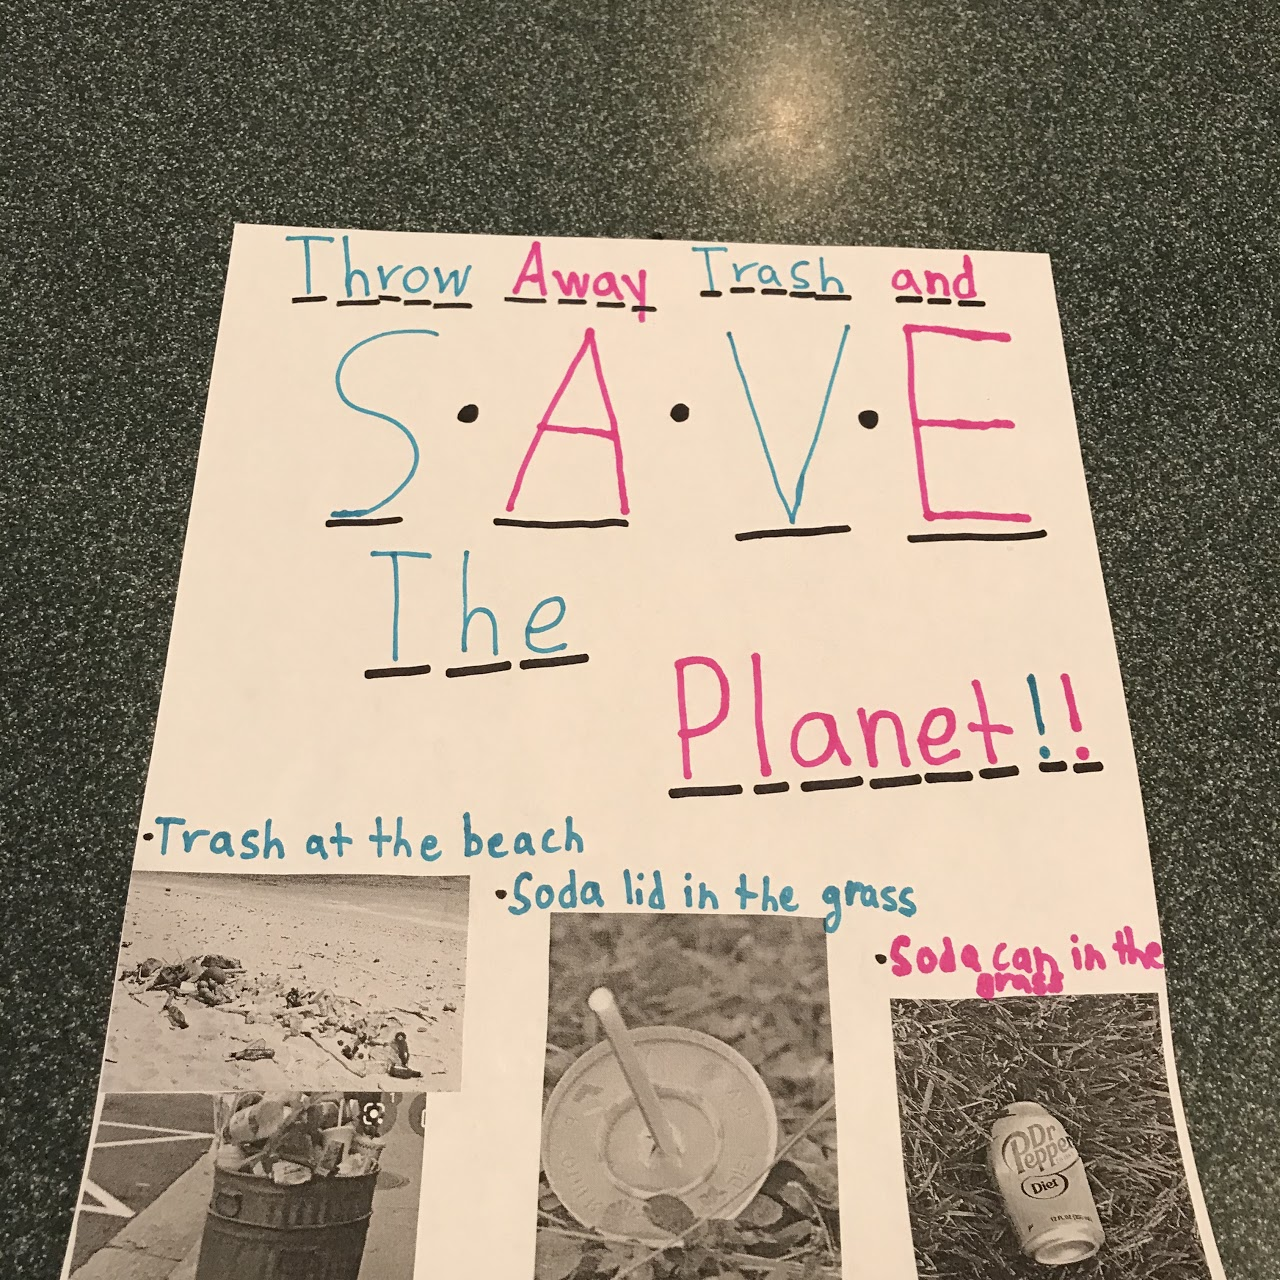 Throw Away Trash and
S•A•V•E
The
Planet!!
•Trash at the beach
•Soda lid in the grass
•Soda can in the
grass
Dr
Pepper
Diet